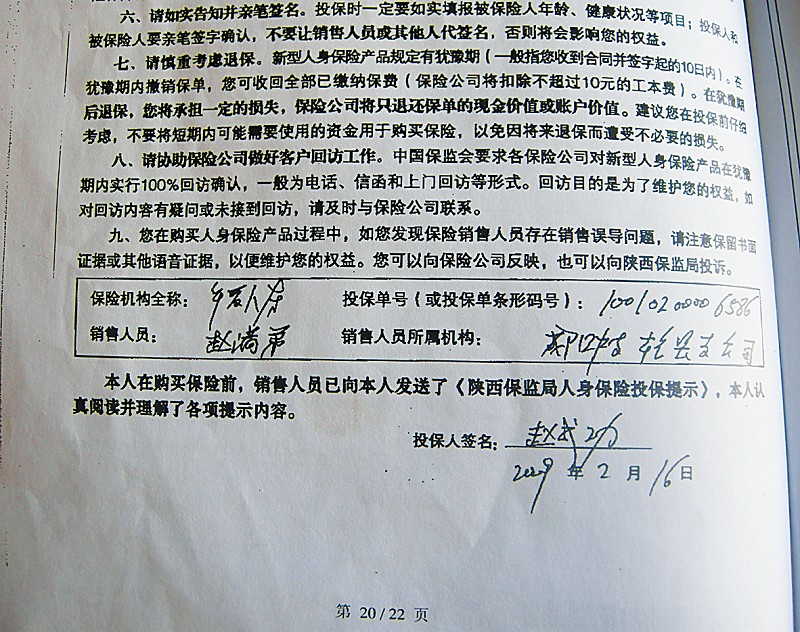 六、请如实告知并亲笔签名。投保时一定要如实填报被保险人年龄、健康状况等项目；投保人和
被保险人要亲笔签字确认，不要让销售人员或其他人代签名，否则将会影响您的权益。
七、请慎重考虑退保。新型人身保险产品规定有犹豫期（一般指您收到合同并签字起的10日内）。在
犹豫期内撤销保单，您可收回全部已缴纳保费（保险公司将扣除不超过10元的工本费）。在犹豫期
后退保，您将承担一定的损失，保险公司将只退还保单的现金价值或账户价值。建议您在投保前仔细
考虑，不要将短期内可能需要使用的资金用于购买保险，以免因将来退保而遭受不必要的损失。
八、请协助保险公司做好客户回访工作。中国保监会要求各保险公司对新型人身保险产品在犹豫
期内实行100%回访确认，一般为电话、信函和上门回访等形式。回访目的是为了维护您的权益，如
对回访内容有疑问或未接到回访，请及时与保险公司联系。
九、您在购买人身保险产品过程中，如您发现保险销售人员存在销售误导问题，请注意保留书面
证据或其他语音证据，以便维护您的权益。您可以向保险公司反映，也可以向陕西保监局投诉。
保险机构全称： 投保单号（或投保单条形码号）：1001020000 6586
销售人员： 销售人员所属机构： 支公司
本人在购买保险前，销售人员已向本人发送了《陕西保监局人身保险投保提示》，本人认
真阅读并理解了各项提示内容。
投保人签名：赵武功
年 2 月 16 日
第 20 / 22 页